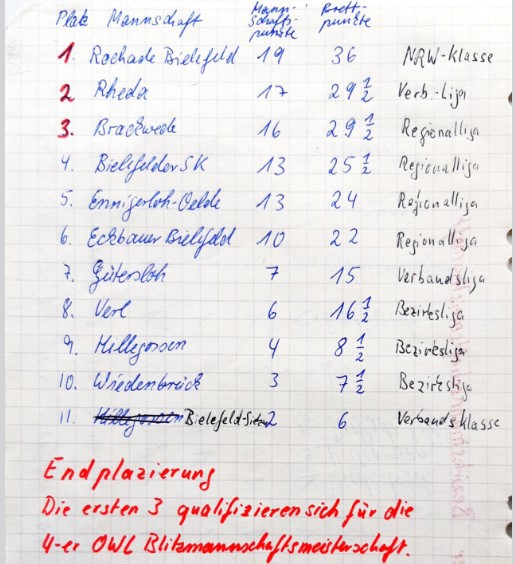 Platz Mannschaft Mann-schafts-punkte Brett-punkte
1. Rochade Bielefeld 19 36 NRW-Klasse
2 Rheda 17 29 1/2 Verb.-Liga
3. Brackwede 16 29 1/2 Regionalliga
4. Bielefelder SK 13 25 1/2 Regionalliga
5. Ennigerloh-Oelde 13 24 Regionalliga
6. Eckbauer Bielefeld 10 22 Regionalliga
7. Gütersloh 7 15 Verbandsliga
8. Verl 6 16 1/2 Bezirksliga
9. Hillegossen 4 8 1/2 Bezirksliga
10. Wiedenbrück 3 7 1/2 Bezirksliga
11. Hillegossen Bielefeld-Sieker 2 6 Verbandsklasse
Endplazierung
Die ersten 3 qualifizieren sich für die
4-er OWL Blitzmannschaftsmeisterschaft.